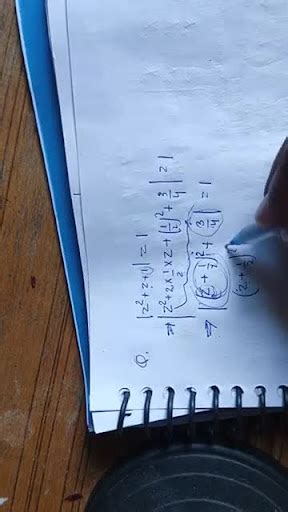 Q. |z² + z + 1| = 1
⇒ |z² + 2 × 1/2 × z + (1/2)² + 3/4| = 1
⇒ |(z + 1/2)² + 3/4| = 1
(z + 1/2)